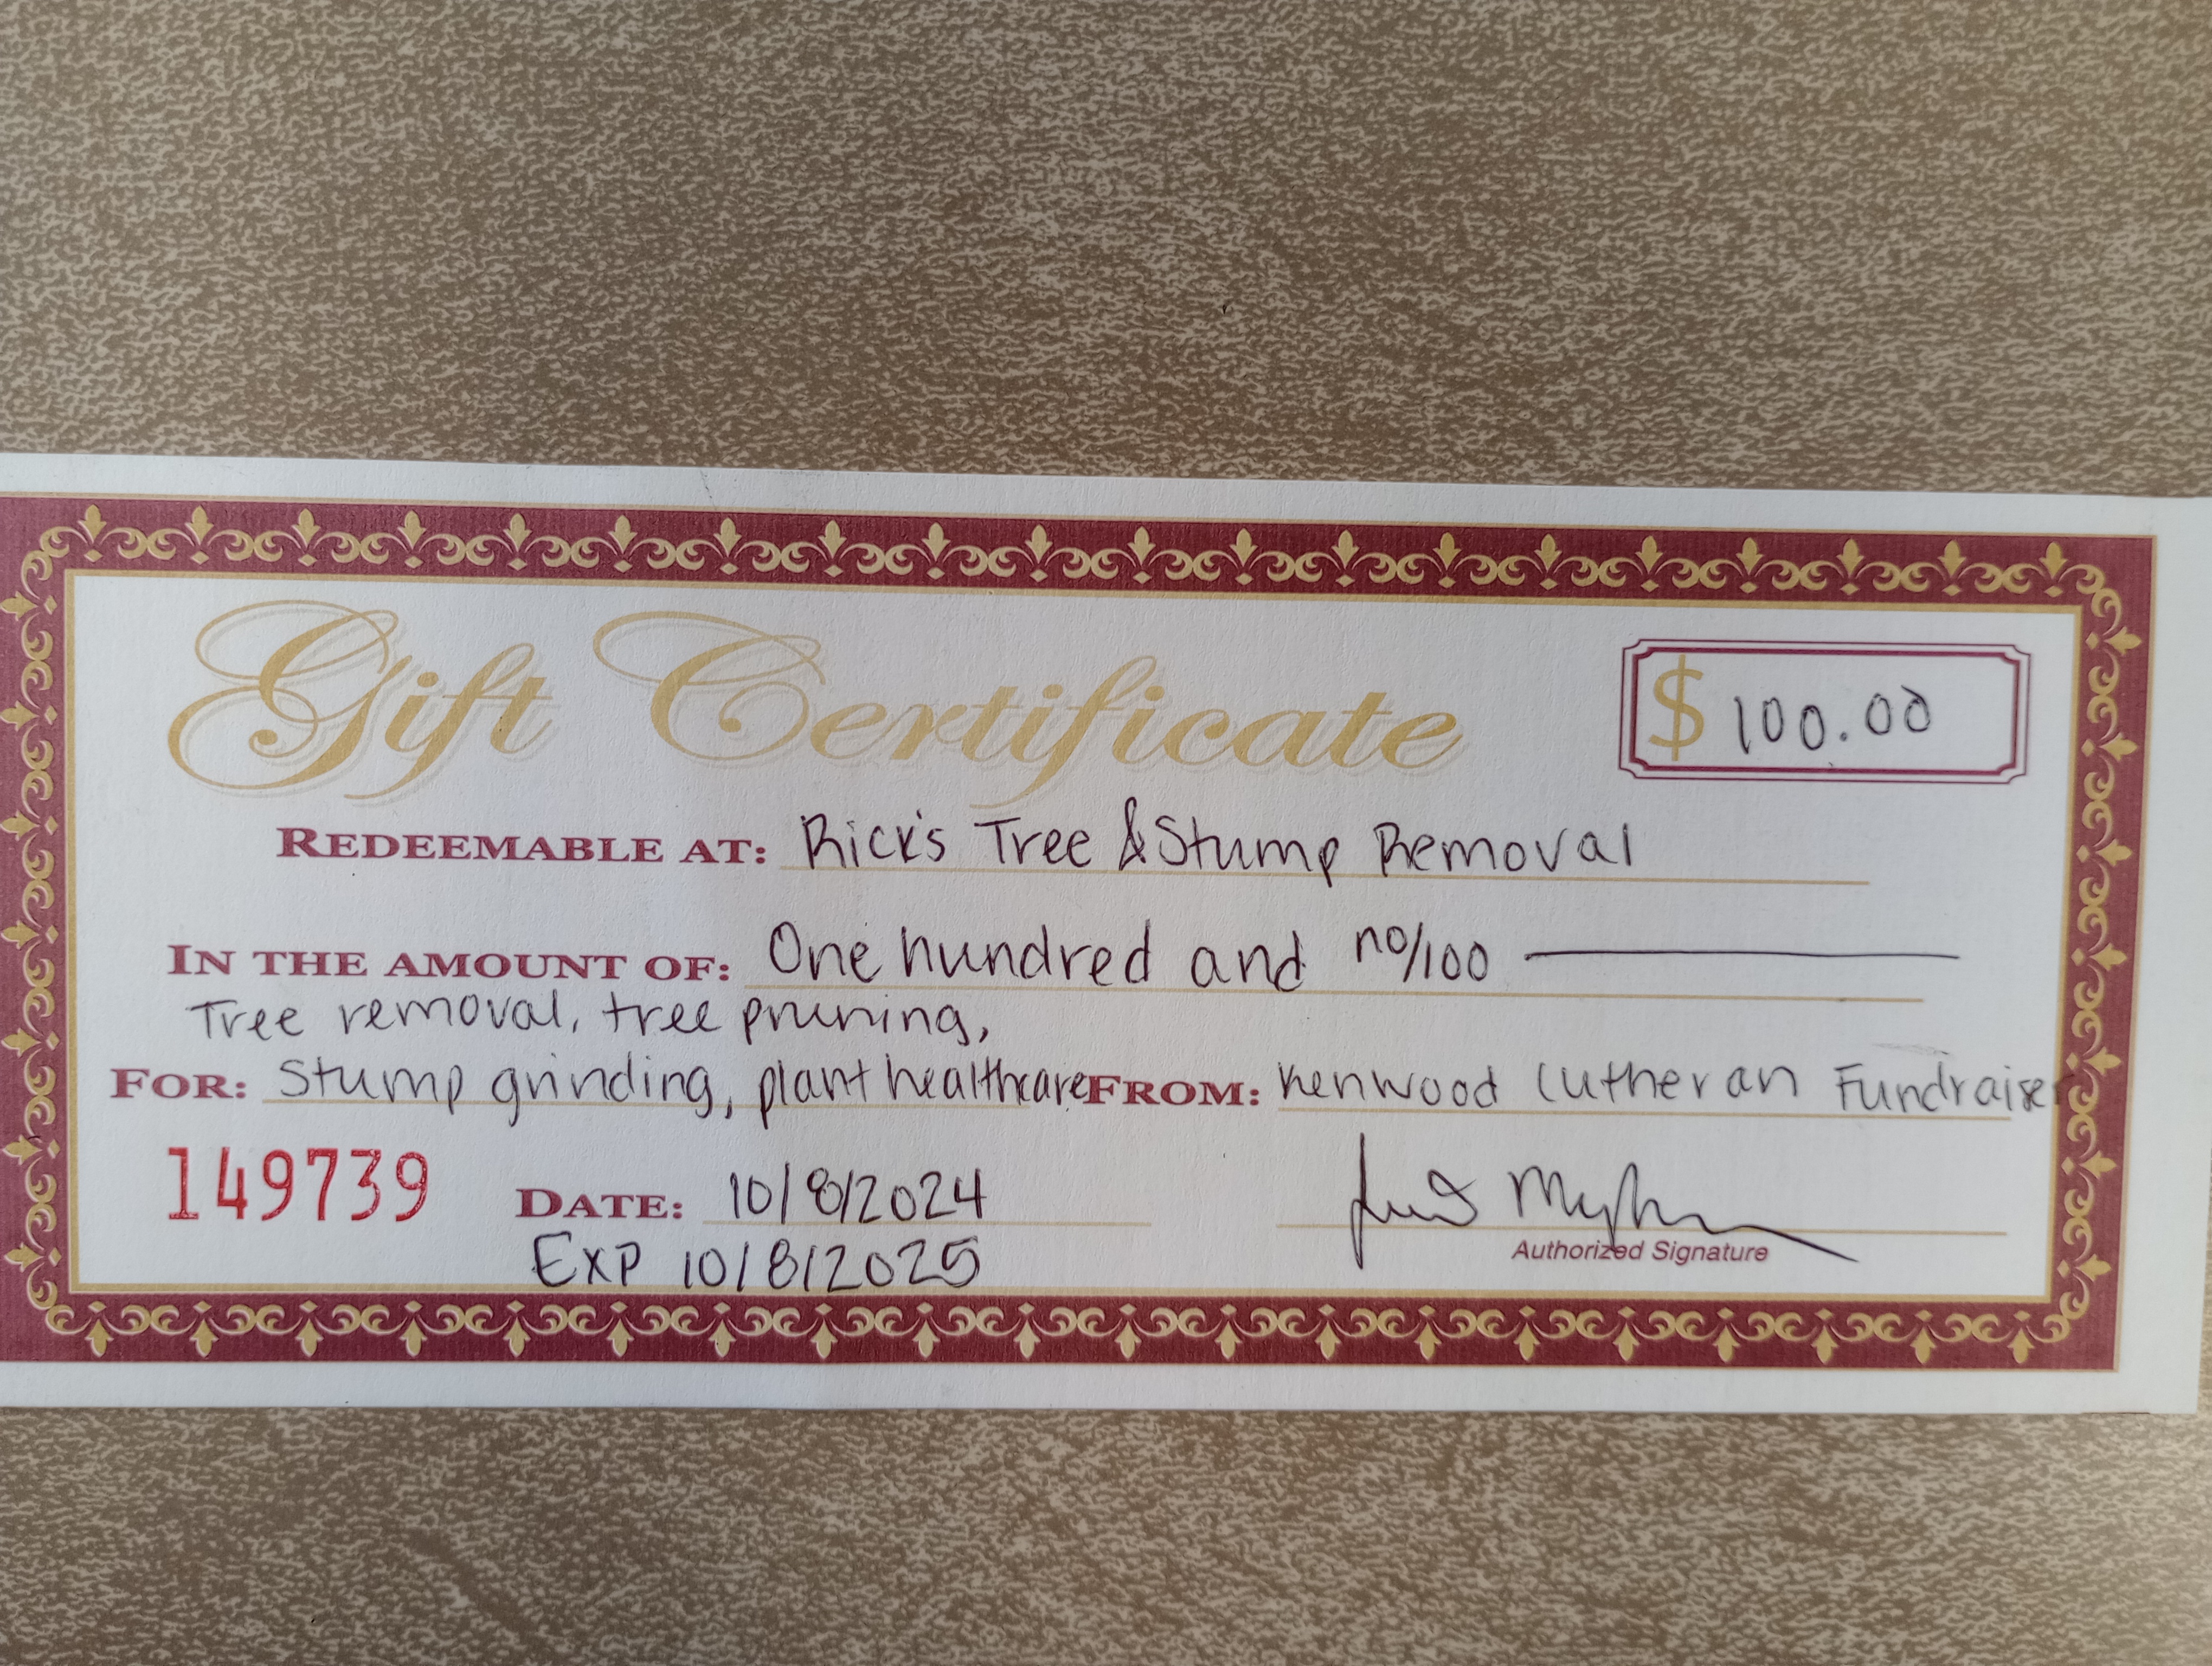 Gift Certificate
$ 100.00
REDEEMABLE AT: Rick's Tree & Stump Removal
IN THE AMOUNT OF: One hundred and no/100
Tree removal, tree pruning,
FOR: Stump grinding, plant healthcare FROM: Kenwood Lutheran Fundraiser
149739 DATE: 10/8/2024
Authorized Signature
EXP 10/8/2025